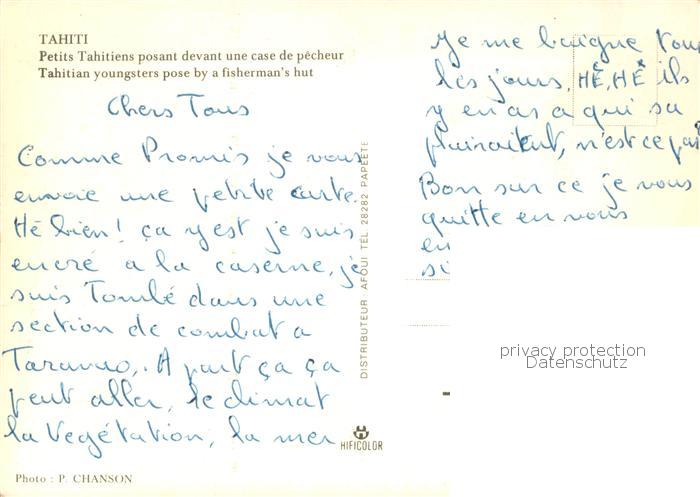 TAHITI
Petits Tahitiens posant devant une case de pêcheur
Tahitian youngsters pose by a fisherman's hut
Chers Tous
Comme Promis je vous
envoie une petite carte.
Hé bien! ça y est je suis
encré a la caserne, je
suis Tombé dans une
section de combat a
Taravao,. A part ça ça
peut aller, le climat
la Végétation, la mer
Photo : P. CHANSON
DISTRIBUTEUR AFOUI TEL 28282 PAPEETE
HIFICOLOR
Je me baigne Tous
les jours, HÉ, HÉ ils
y en as a qui sa
plairaient, n'est ce pas
Bon sur ce je vous
quitte en vous
en
si
privacy protection
Datenschutz